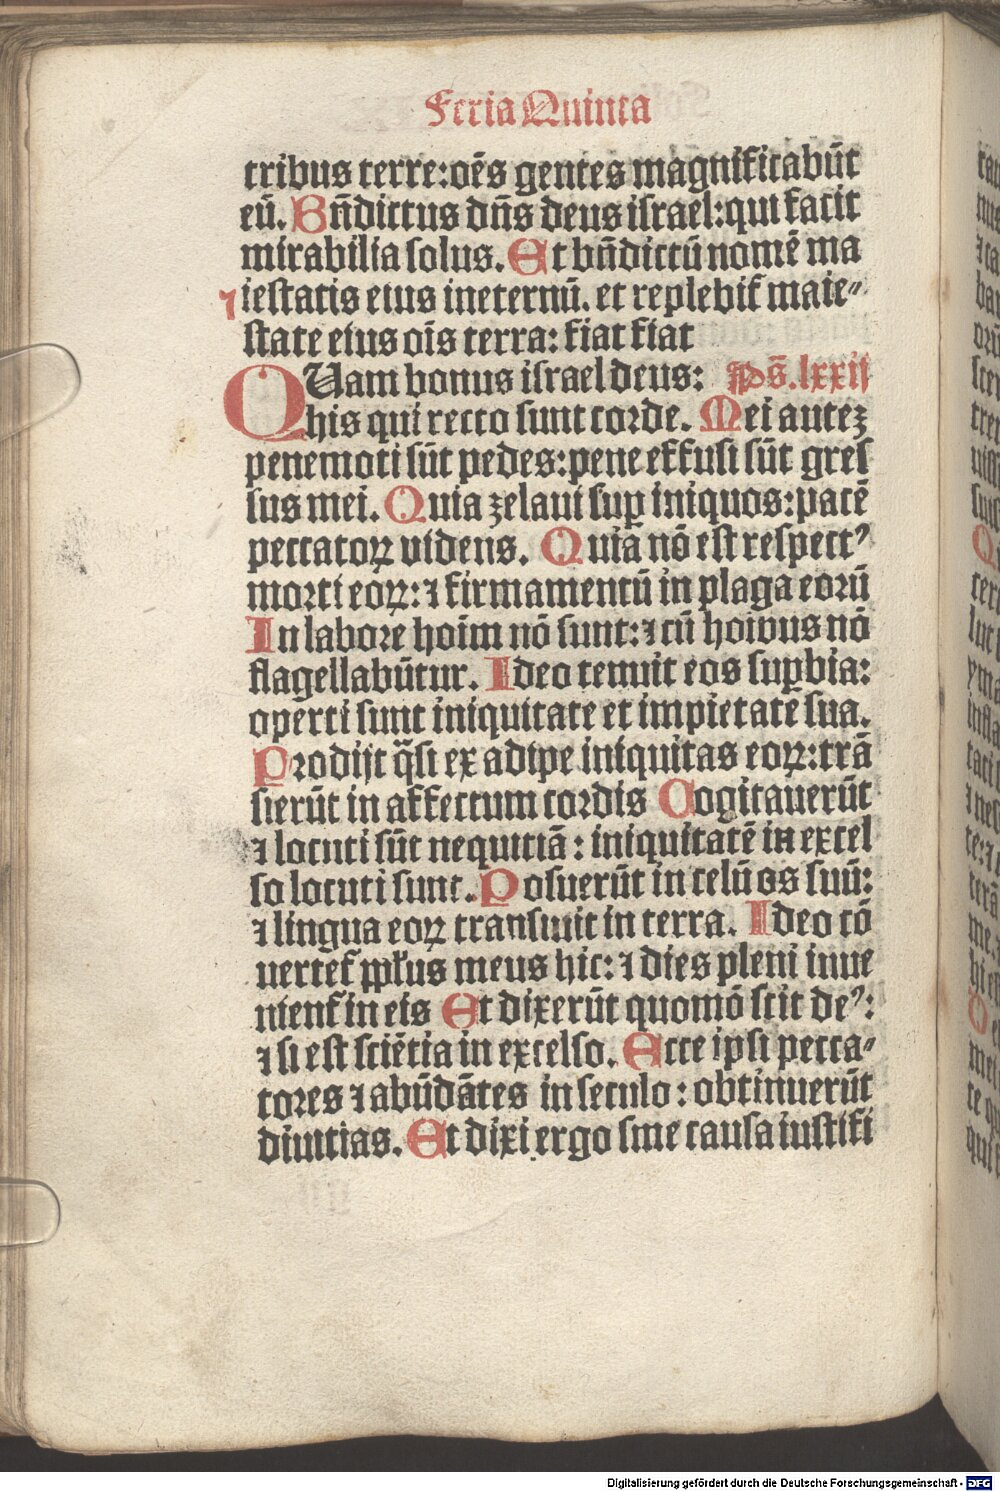 Feria Quinta
tribus terre:oēs gentes magnificabūt
eū. Bn̄dictus dn̄s deus israel:qui facit
mirabilia solus. Et bn̄dictū nomē ma
iestatis eius ineternū. et replebit᷑ maie⸗
state eius oīs terra: fiat fiat
QUam bonus israel deus: Ps̄. lxxij
his qui recto sunt corde. Mei auteꝫ
penemoti sūt pedes:pene effusi sūt gres
sus mei. Quia zelaui suꝑ iniquos:pacē
peccatoꝝ videns. Quia nō est respectꝰ
morti eoꝝ:⁊ firmamentū in plaga eorū
In labore hoīm nō sunt:⁊ cū hoībus nō
flagellabūtur. Ideo tenuit eos suꝑbia:
operti sunt iniquitate et impietate sua.
Prodijt q̄si ex adipe iniquitas eoꝝ:trā
sierūt in affectum cordis Cogitauerūt
⁊ locuti sūt nequitiā: iniquitatē in excel
so locuti sunt. Posuerūt in celū os suū:
⁊ lingua eoꝝ transiuit in terra. Ideo cō
uertet᷑ ppłus meus hic:⁊ dies pleni inue
nient᷑ in eis Et dixerūt quomō scit deꝰ:
⁊ si est sciētia in excelso. Ecce ipsi pecca⸗
tores ⁊ abūdātes in seculo: obtinuerūt
diuitias. Et dixi ergo sine causa iustifi
Digitalisierung gefördert durch die Deutsche Forschungsgemeinschaft - DFG